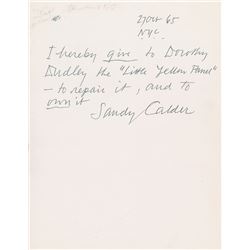 27 Oct 65
NYC.
I hereby give to Dorothy
Dudley the "Little Yellow Panel"
- to repair it, and to
own it
Sandy Calder